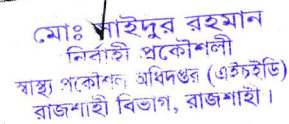 মোঃ সাইদুর রহমান
নির্বাহী প্রকৌশলী
স্বাস্থ্য প্রকৌশল অধিদপ্তর (এইচইডি)
রাজশাহী বিভাগ, রাজশাহী।